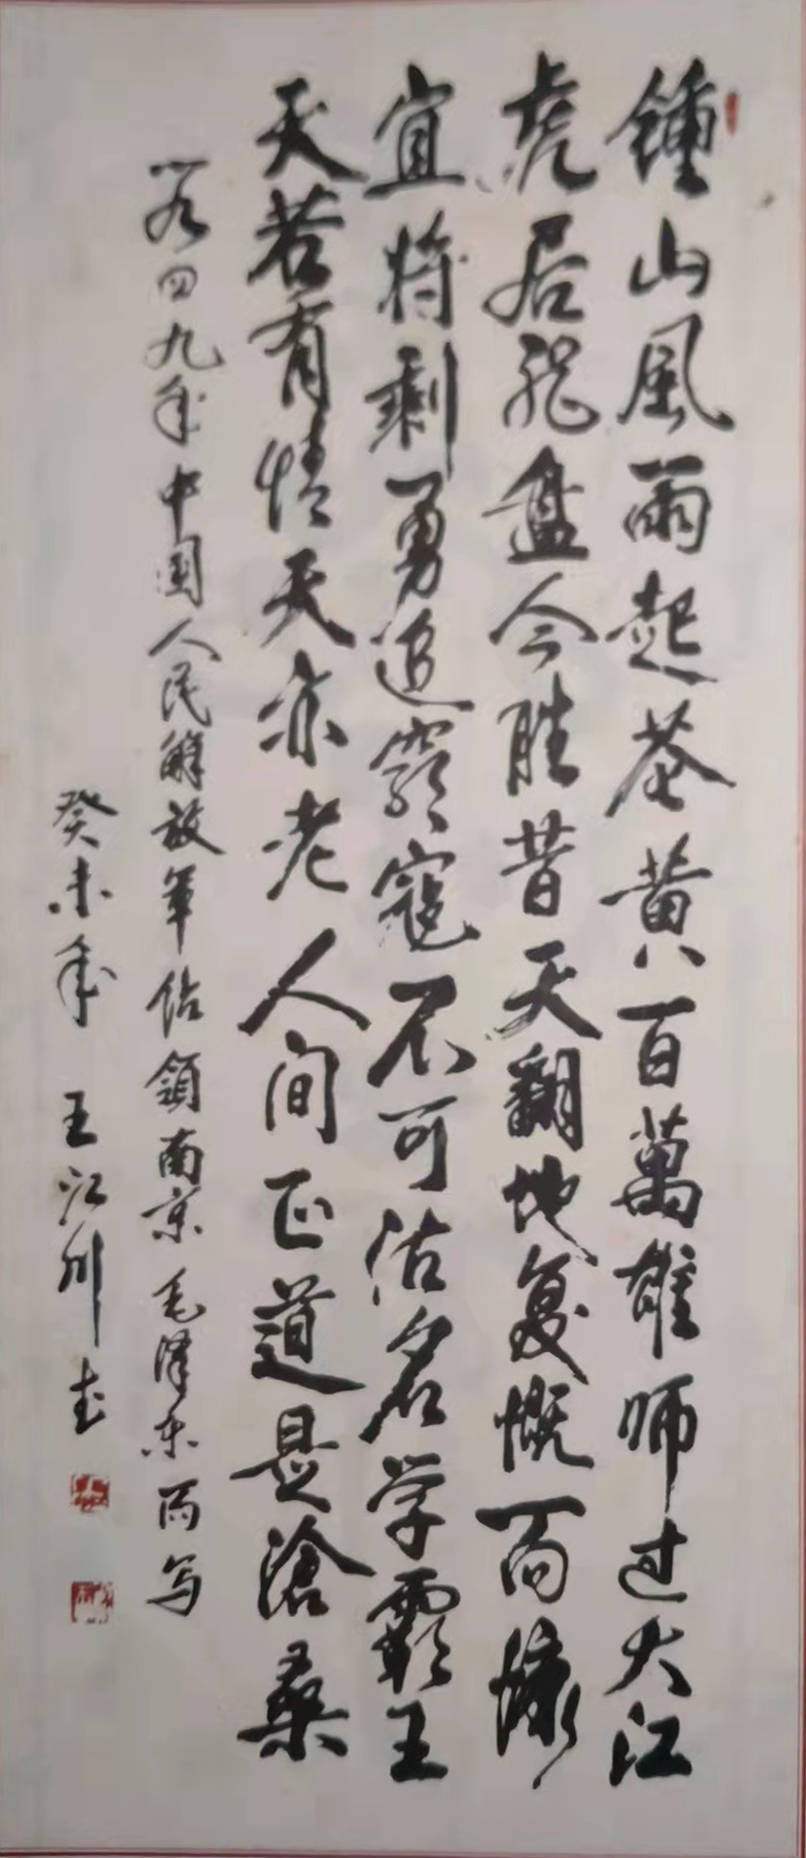 鍾山風雨起苍黄百萬雄师过大江
虎居龙盘今胜昔天翻地复慨而慷
宜将剩勇追窮寇不可沽名学霸王
天若有情天亦老人间正道是滄桑
一九四九年中國人民解放軍佔領南京毛泽东所写
癸未年 王江川书